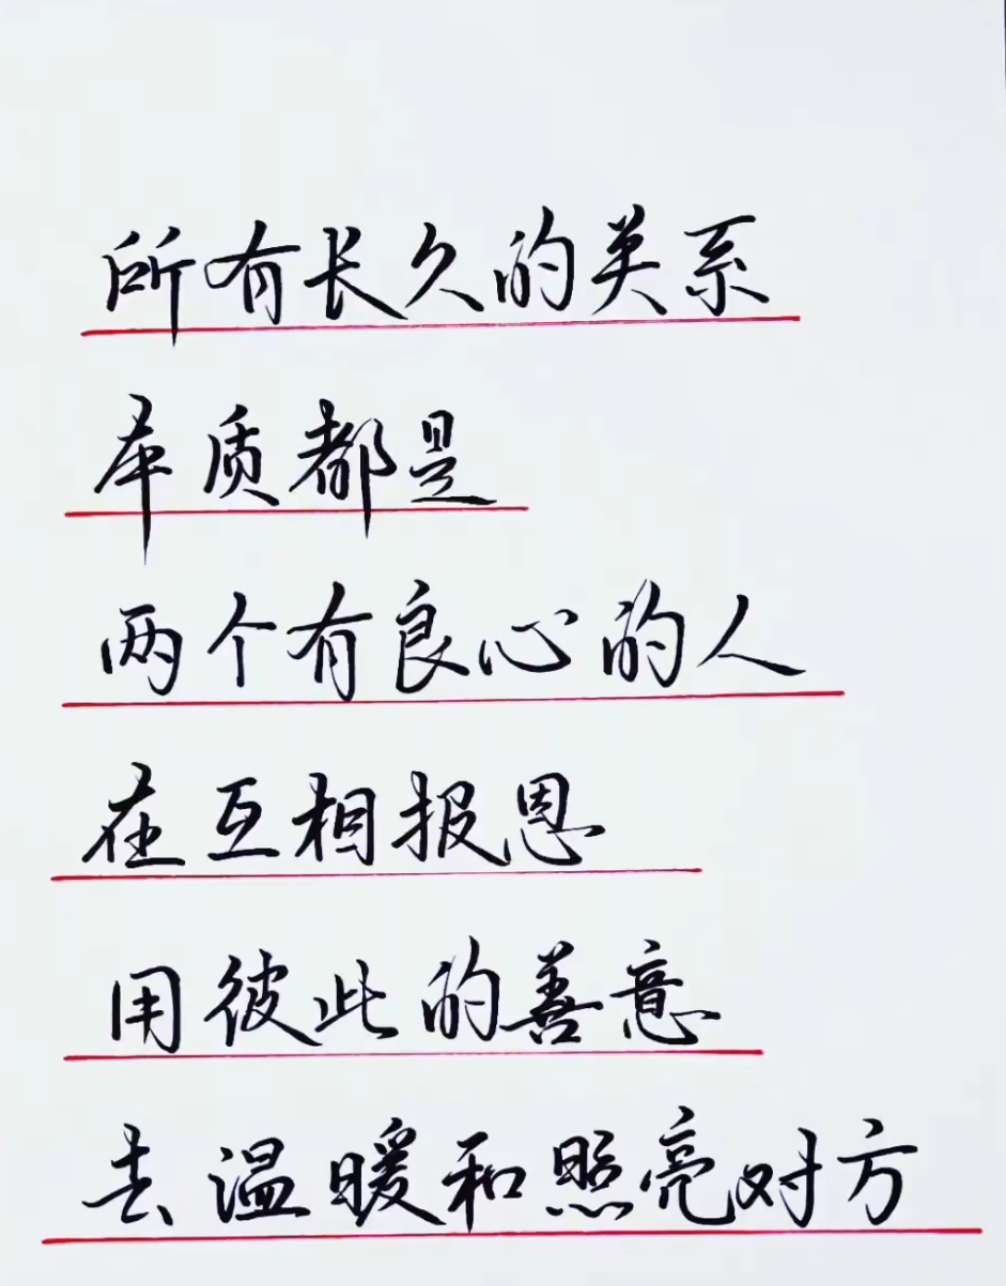 所有长久的关系
本质都是
两个有良心的人
在互相报恩
用彼此的善意
去温暖和照亮对方